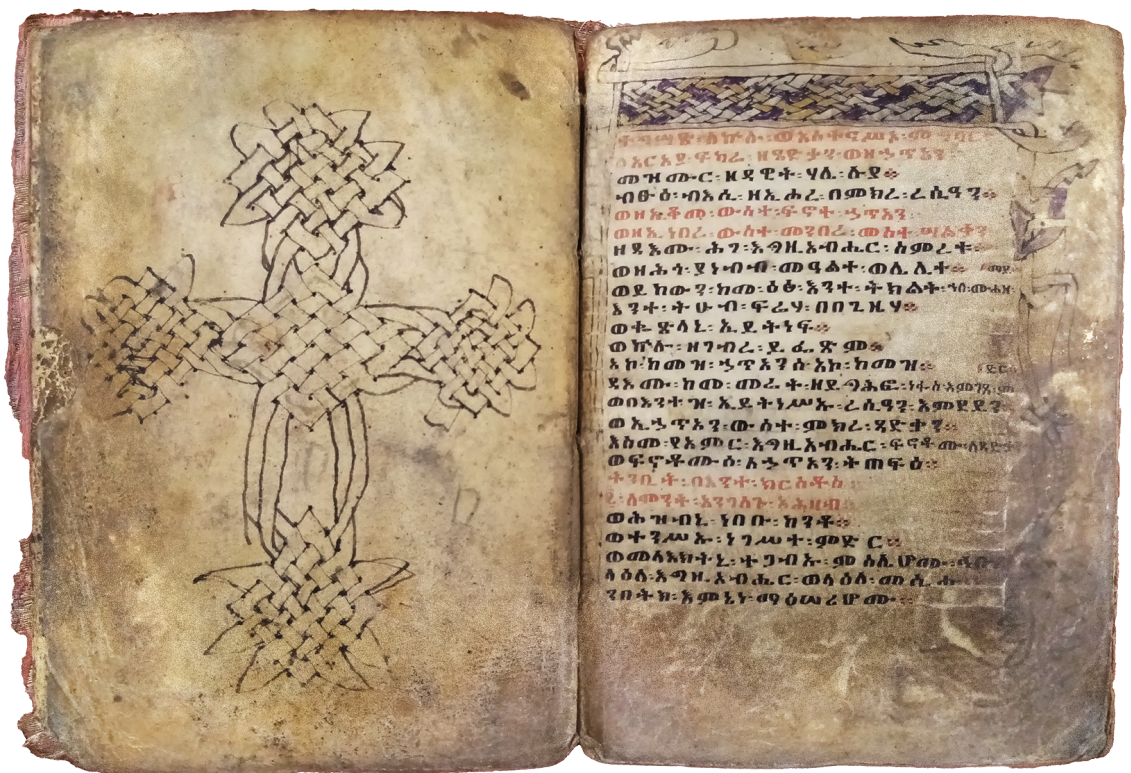 ፍካሬ፡ዘጻድቃን፡ወዘኃጥአን፡
መዝሙር፡ዘዳዊት፡ሃሌ፡ሉያ።
ብፁዕ፡ብእሲ፡ዘኢሖረ፡በምክረ፡ረሲዓን።
ወዘኢቆመ፡ውስተ፡ፍኖተ፡ኃጥአን፡
ወዘኢነበረ፡ውስተ፡መንበረ፡መስተሣልቃን፡
ዘዳእሙ፡ሕገ፡እግዚአብሔር፡ስምረት።
ወዘሕጎ፡ያነብብ፡መዓልተ፡ወሌሊተ።
ወይከውን፡ከመ፡ዕፅ፡እንተ፡ትክልት፡ኀበ፡ሙሐዘ፡ማይ
እንተ፡ትሁብ፡ፍሬሃ፡በበጊዜሃ
ወቈጽላኒ፡ኢይትነገፍ።
ወኵሉ፡ዘገብረ፡ይፌጽም።
አኮ፡ከመዝ፡ኃጥአንሰ፡አኮ፡ከመዝ።
ዳእሙ፡ከመ፡መሬት፡ዘይግሕፎ፡ነፋስ፡እምገጸ፡ምድር።
ወበእንተዝ፡ኢይትነሥኡ፡ረሲዓን፡እምደይን።
ወኢኃጥአን፡ውስተ፡ምክረ፡ጻድቃን።
እስመ፡ያአምር፡እግዚአብሔር፡ፍኖቶሙ፡ለጻድቃን
ወፍኖቶሙሰ፡ለኃጥአን፡ትጠፍዕ።
ትንቢት፡በእንተ፡ክርስቶስ
፪፡ለምንት፡አንገለጉ፡አሕዛብ።
ወሕዝብኒ፡ነበቡ፡ከንቶ።
ወተንሥኡ፡ነገሥተ፡ምድር።
ወመላእክትኒ፡ተጋብኡ፡ምስሌሆሙ፡
ላዕለ፡እግዚአብሔር፡ወላዕለ፡መሲሑ
ንበትክ፡እምኔነ፡ማዕሠሪሆሙ።